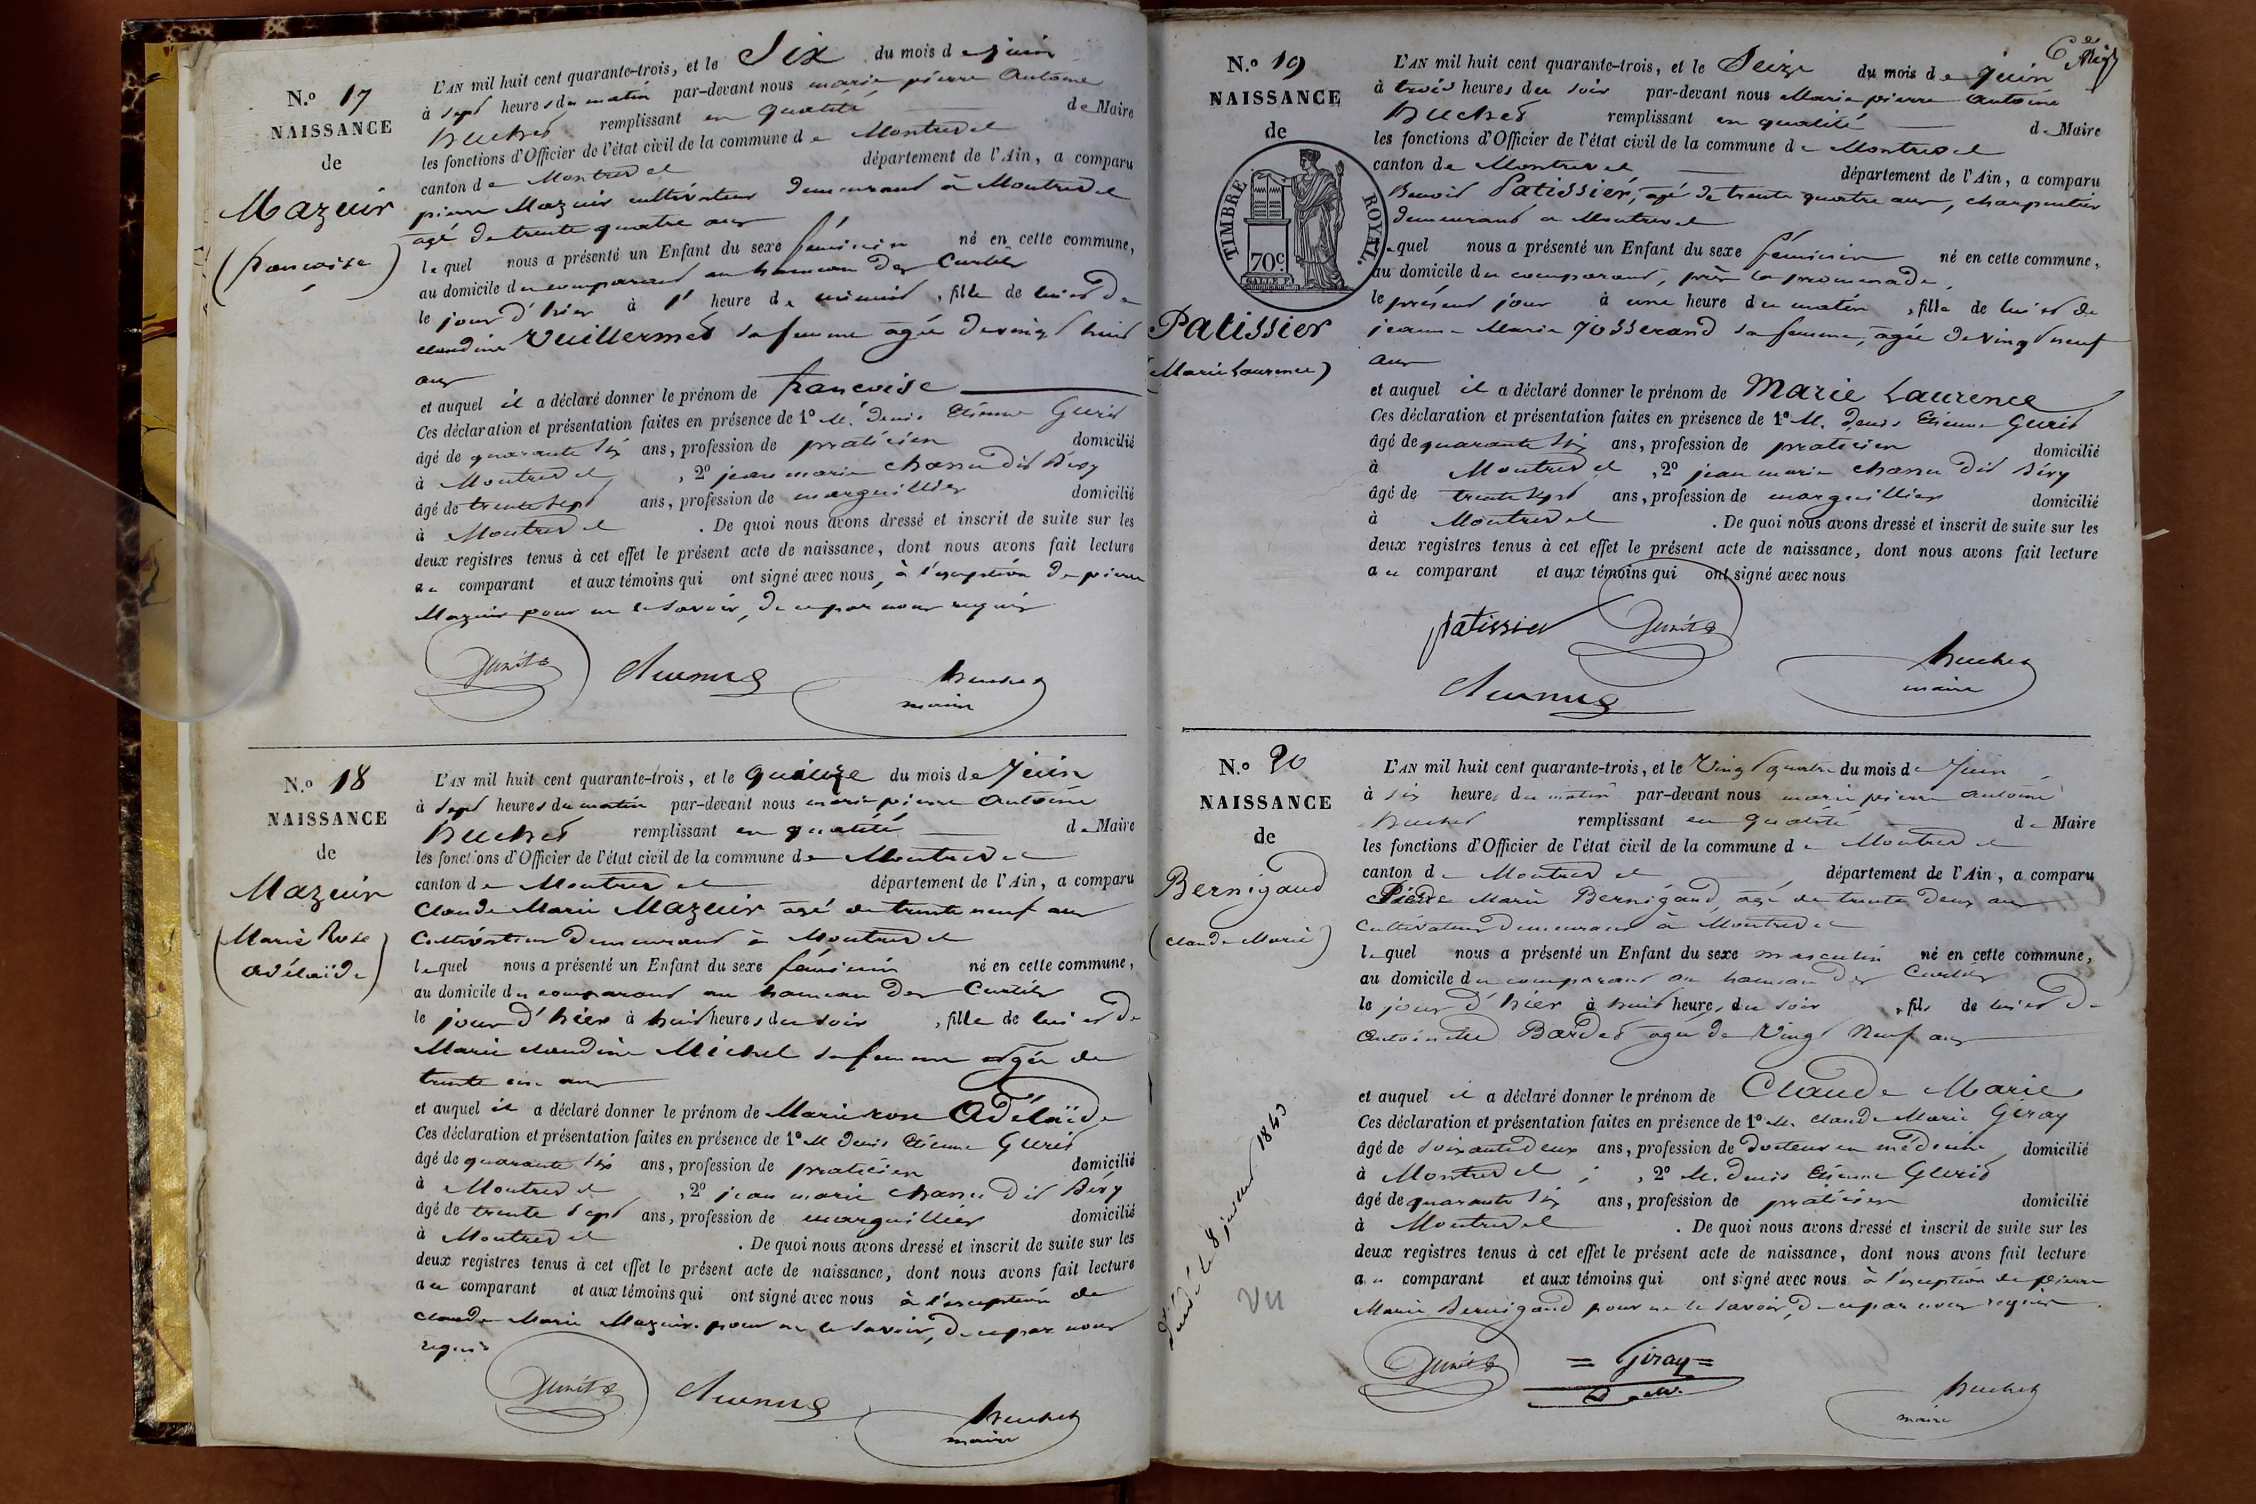 N.º 17
NAISSANCE
de
Mazuir
(françoise)
L'AN mil huit cent quarante-trois, et le Six du mois de juin
à sept heures du matin par-devant nous marie pierre Antoine
huchet remplissant en qualité de Maire
les fonctions d'Officier de l'état civil de la commune de Montrevel
canton de Montrevel département de l'Ain, a comparu
pierre Mazuir cultivateur demeurant à Montrevel
agé de trente quatre ans
lequel nous a présenté un Enfant du sexe féminin né en cette commune,
au domicile du comparant au hameau des Curtils
le jour d'hier à heure de minuit, fille de lui et de
claudine Vuillermet sa femme agée de vingt huit
ans
et auquel il a déclaré donner le prénom de françoise
Ces déclaration et présentation faites en présence de 1º M. denis Etienne Gurit
âgé de quarante six ans, profession de praticien domicilié
à Montrevel, 2º jean marie chanu dit Bévy
âgé de trente sept ans, profession de marguillier domicilié
à Montrevel. De quoi nous avons dressé et inscrit de suite sur les
deux registres tenus à cet effet le présent acte de naissance, dont nous avons fait lecture
au comparant et aux témoins qui ont signé avec nous, à l'exception de pierre
Mazuir pour ne le savoir, de ce par nous requis
huchet
maire
N.º 18
NAISSANCE
de
Mazuir
(Marie Rose
adélaïde)
L'AN mil huit cent quarante-trois, et le quinze du mois de Juin
à sept heures du matin par-devant nous marie pierre Antoine
huchet remplissant en qualité de Maire
les fonctions d'Officier de l'état civil de la commune de Montrevel
canton de Montrevel département de l'Ain, a comparu
Claude Marie Mazuir agé de trente neuf ans
Cultivateur demeurant à Montrevel
lequel nous a présenté un Enfant du sexe féminin né en cette commune,
au domicile du comparant au hameau des Curtils
le jour d'hier à huit heures du soir, fille de lui et de
Marie claudine Michel sa femme agée de
trente cinq ans
et auquel il a déclaré donner le prénom de Marie rose Adélaïde
Ces déclaration et présentation faites en présence de 1º M denis Etienne Gurit
âgé de quarante six ans, profession de praticien domicilié
à Montrevel, 2º jean marie chanu dit Bévy
âgé de trente sept ans, profession de marguillier domicilié
à Montrevel. De quoi nous avons dressé et inscrit de suite sur les
deux registres tenus à cet effet le présent acte de naissance, dont nous avons fait lecture
au comparant et aux témoins qui ont signé avec nous à l'exception de
claude Marie Mazuir pour ne le savoir, de ce par nous
requis
huchet
maire
N.º 19
NAISSANCE
de
TIMBRE ROYAL.
70 c.
Patissier
(Marie Laurence)
L'AN mil huit cent quarante-trois, et le Seize du mois de juin
à trois heures du soir par-devant nous Marie pierre Antoine
huchet remplissant en qualité de Maire
les fonctions d'Officier de l'état civil de la commune de Montrevel
canton de Montrevel département de l'Ain, a comparu
Benoit Patissier, agé de trente quatre ans, charpentier
demeurant à Montrevel
lequel nous a présenté un Enfant du sexe féminin né en cette commune,
au domicile du comparant, près la promenade,
le présent jour à une heure du matin, fille de lui et de
jeanne Marie Josserand sa femme, agée de vingt neuf
ans
et auquel il a déclaré donner le prénom de Marie Laurence
Ces déclaration et présentation faites en présence de 1º M. denis Etienne Gurit
âgé de quarante six ans, profession de praticien domicilié
à Montrevel, 2º jean marie chanu dit Bévy
âgé de trente sept ans, profession de marguillier domicilié
à Montrevel. De quoi nous avons dressé et inscrit de suite sur les
deux registres tenus à cet effet le présent acte de naissance, dont nous avons fait lecture
au comparant et aux témoins qui ont signé avec nous
patissier
huchet
maire
N.º 20
NAISSANCE
de
Bernigaud
(claude Marie)
L'AN mil huit cent quarante-trois, et le Vingt quatre du mois de Juin
à six heures du matin par-devant nous marie pierre antoine
huchet remplissant en qualité de Maire
les fonctions d'Officier de l'état civil de la commune de Montrevel
canton de Montrevel département de l'Ain, a comparu
Pierre Marie Bernigaud, agé de trente deux ans
Cultivateur demeurant à Montrevel
lequel nous a présenté un Enfant du sexe masculin né en cette commune,
au domicile du comparant au hameau des Curtils
le jour d'hier à huit heures du soir, fils de lui et de
Antoinette Bardet agée de Vingt Neuf ans
et auquel il a déclaré donner le prénom de Claude Marie
Ces déclaration et présentation faites en présence de 1º M. claude Marie Giray
âgé de soixante deux ans, profession de docteur en médecine, domicilié
à Montrevel; , 2º M. denis Etienne Gurit
âgé de quarante six ans, profession de praticien domicilié
à Montrevel. De quoi nous avons dressé et inscrit de suite sur les
deux registres tenus à cet effet le présent acte de naissance, dont nous avons fait lecture
au comparant et aux témoins qui ont signé avec nous à l'exception de pierre
Marie Bernigaud pour ne le savoir, de ce par nous requis
= Giray =
huchet
maire
Vu